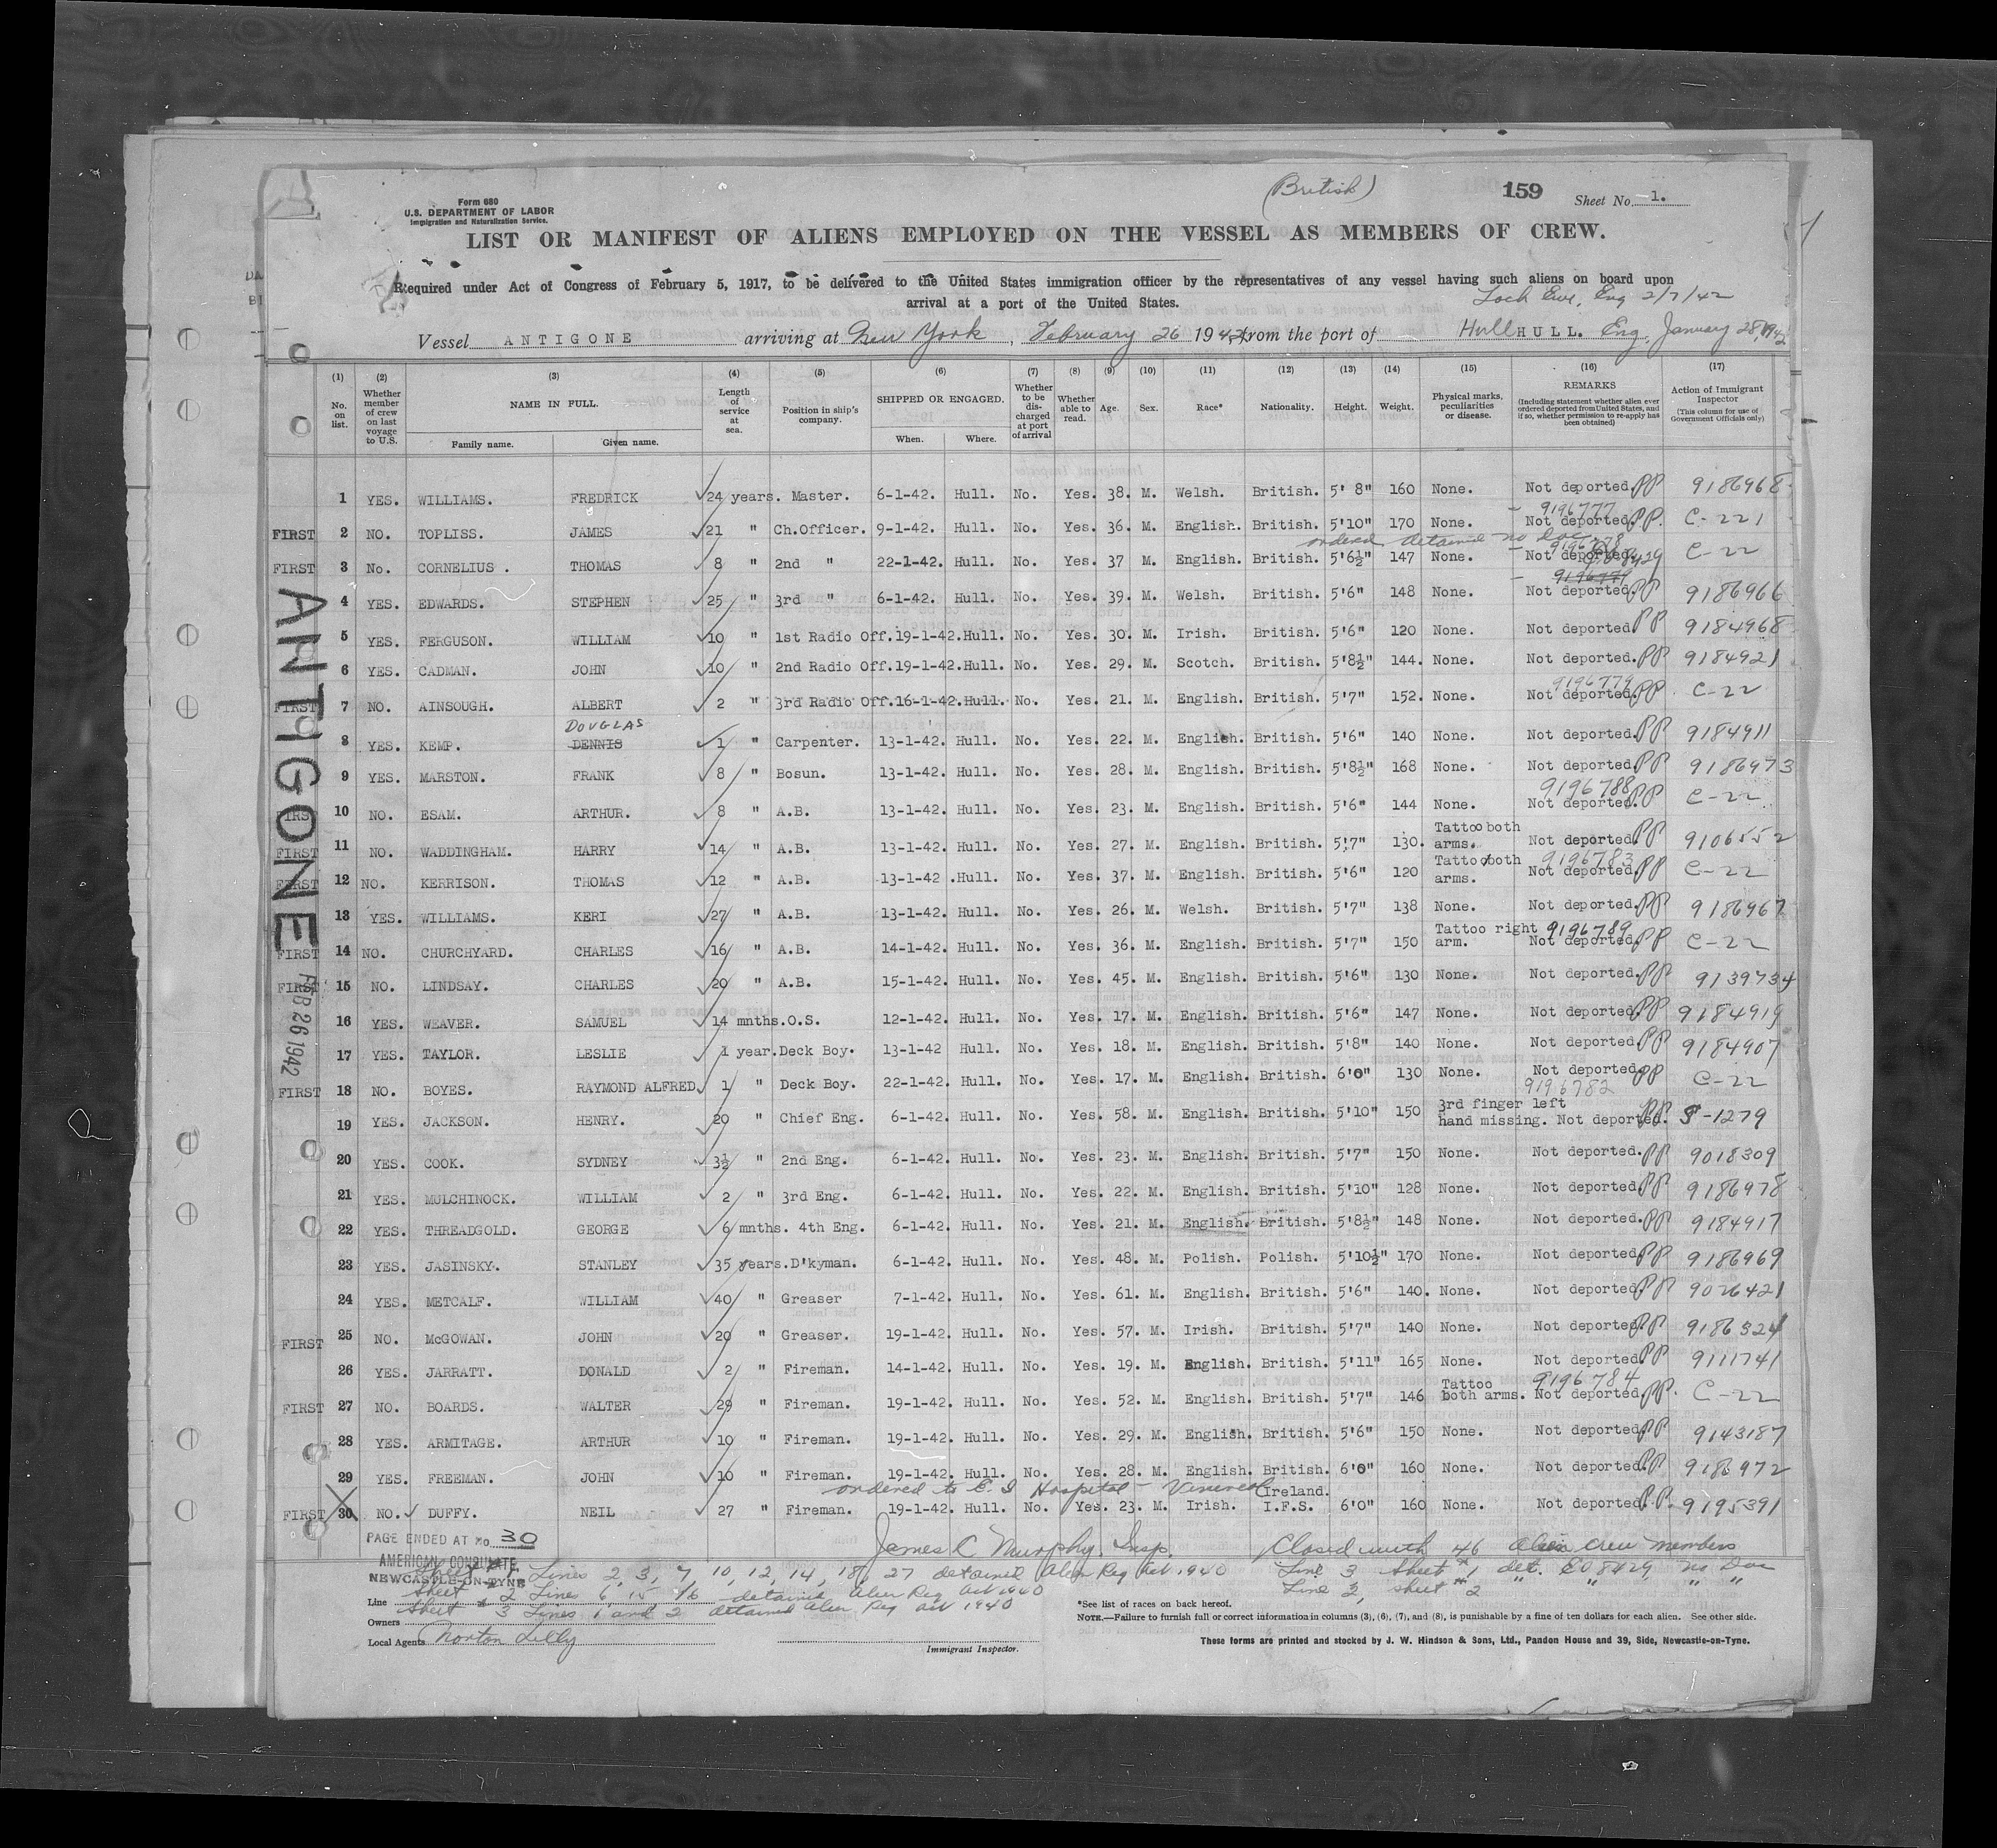 (British)
159
Sheet No. 1.
Form 680
U.S. DEPARTMENT OF LABOR
Immigration and Naturalization Service.
LIST OR MANIFEST OF ALIENS EMPLOYED ON THE VESSEL AS MEMBERS OF CREW.
Required under Act of Congress of February 5, 1917, to be delivered to the United States immigration officer by the representatives of any vessel having such aliens on board upon
arrival at a port of the United States.
Loch Ewe, Eng 2/7/42
Vessel ANTIGONE arriving at New York, February 26 1942 from the port of Hull HULL. Eng, January 28, 1942
(1) No. on list.
(2) Whether member of crew on last voyage to U.S.
(3) NAME IN FULL. Family name. Given name.
(4) Length of service at sea.
(5) Position in ship's company.
(6) SHIPPED OR ENGAGED. When. Where.
(7) Whether to be discharged at port of arrival
(8) Whether able to read.
(9) Age.
(10) Sex.
(11) Race*
(12) Nationality.
(13) Height.
(14) Weight.
(15) Physical marks, peculiarities or disease.
(16) REMARKS (Including statement whether alien ever ordered deported from United States, and if so, whether permission to re-apply has been obtained)
(17) Action of Immigrant Inspector (This column for use of Government Officials only)
1 YES. WILLIAMS. FREDRICK 24 years. Master. 6-1-42. Hull. No. Yes. 38. M. Welsh. British. 5' 8" 160 None. Not deported. PP 9186968
FIRST 2 NO. TOPLISS. JAMES 21 " Ch.Officer. 9-1-42. Hull. No. Yes. 36. M. English. British. 5'10" 170 None. 9196777 Not deported. PP. C-221
ordered detained no Doc.
FIRST 3 No. CORNELIUS . THOMAS 8 " 2nd " 22-1-42. Hull. No. Yes. 37 M. English. British. 5'6½" 147 None. 9196778 Not deported. C-22
4 YES. EDWARDS. STEPHEN 25 " 3rd " 6-1-42. Hull. No. Yes. 39. M. Welsh. British. 5'6" 148 None. 9196779 Not deported. PP 9186966
5 YES. FERGUSON. WILLIAM 10 " 1st Radio Off. 19-1-42. Hull. No. Yes. 30. M. Irish. British. 5'6" 120 None. Not deported. PP 9184968
6 YES. CADMAN. JOHN 10 " 2nd Radio Off. 19-1-42. Hull. No. Yes. 29. M. Scotch. British. 5'8½" 144. None. Not deported. PP 9184921
FIRST 7 NO. AINSOUGH. ALBERT 2 " 3rd Radio Off. 16-1-42. Hull. No. Yes. 21. M. English. British. 5'7" 152. None. 9196779 Not deported. PP C-22
DOUGLAS
8 YES. KEMP. DENNIS 1 " Carpenter. 13-1-42. Hull. No. Yes. 22. M. English. British. 5'6" 140 None. Not deported. PP 9184911
9 YES. MARSTON. FRANK 8 " Bosun. 13-1-42. Hull. No. Yes. 28. M. English. British. 5'8½" 168 None. Not deported. PP 9186973
10 NO. ESAM. ARTHUR. 8 " A.B. 13-1-42. Hull. No. Yes. 23. M. English. British. 5'6" 144 None. 9196788 Not deported. PP C-22
FIRST 11 NO. WADDINGHAM. HARRY 14 " A.B. 13-1-42. Hull. No. Yes. 27. M. English. British. 5'7" 130. Tattoo both arms. Not deported. PP 9106552
FIRST 12 NO. KERRISON. THOMAS 12 " A.B. 13-1-42 .Hull. No. Yes. 37. M. English. British. 5'6" 120 Tattoo both arms. 9196783 Not deported. PP C-22
13 YES. WILLIAMS. KERI 27 " A.B. 13-1-42. Hull. No. Yes. 26. M. Welsh. British. 5'7" 138 None. Not deported. PP 9186967
FIRST 14 NO. CHURCHYARD. CHARLES 16 " A.B. 14-1-42. Hull. No. Yes. 36. M. English. British. 5'7" 150 Tattoo right arm. 9196789 Not deported. PP C-22
FIRST 15 NO. LINDSAY. CHARLES 20 " A.B. 15-1-42. Hull. No. Yes. 45. M. English. British. 5'6" 130 None. Not deported. PP 9139734
16 YES. WEAVER. SAMUEL 14 mnths. O.S. 12-1-42. Hull. No. Yes. 17. M. English. British. 5'6" 147 None. Not deported. PP 9184919
17 YES. TAYLOR. LESLIE 1 year. Deck Boy. 13-1-42 Hull. No. Yes. 18. M. English. British. 5'8" 140 None. Not deported. PP 9184907
FIRST 18 NO. BOYES. RAYMOND ALFRED. 1 " Deck Boy. 22-1-42. Hull. No. Yes. 17. M. English. British. 6'0" 130 None. Not deported. PP 9196782 C-22
19 YES. JACKSON. HENRY. 20 " Chief Eng. 6-1-42. Hull. No. Yes. 58. M. English. British. 5'10" 150 3rd finger left hand missing. Not deported. PP S-1279
20 YES. COOK. SYDNEY 3½ " 2nd Eng. 6-1-42. Hull. No. Yes. 23. M. English. British. 5'7" 150 None. Not deported. PP 9018309
21 YES. MULCHINOCK. WILLIAM 2 " 3rd Eng. 6-1-42. Hull. No. Yes. 22. M. English. British. 5'10" 128 None. Not deported. PP 9186978
22 YES. THREADGOLD. GEORGE 6 mnths. 4th Eng. 6-1-42. Hull. No. Yes. 21. M. English. British. 5'8½" 148 None. Not deported. PP 9184917
23 YES. JASINSKY. STANLEY 35 years. D'kyman. 6-1-42. Hull. No. Yes. 48. M. Polish. Polish. 5'10½" 170 None. Not deported. PP 9186969
24 YES. METCALF. WILLIAM 40 " Greaser 7-1-42. Hull. No. Yes. 61. M. English. British. 5'6" 140. None. Not deported. PP 9026421
FIRST 25 NO. McGOWAN. JOHN 20 " Greaser. 19-1-42. Hull. No. Yes. 57. M. Irish. British. 5'7" 140 None. Not deported. PP 9186324
26 YES. JARRATT. DONALD 2 " Fireman. 14-1-42. Hull. No. Yes. 19. M. English. British. 5'11" 165 None. Not deported. PP 9111741
FIRST 27 NO. BOARDS. WALTER 29 " Fireman. 19-1-42. Hull. No. Yes. 52. M. English. British. 5'7" 146 Tattoo both arms. 9196784 Not deported. PP. C-22
28 YES. ARMITAGE. ARTHUR 10 " Fireman. 19-1-42. Hull. No. Yes. 29. M. English. British. 5'6" 150 None. Not deported. PP 9143187
29 YES. FREEMAN. JOHN 10 " Fireman. 19-1-42. Hull. No. Yes. 28. M. English. British. 6'0" 160 None. Not deported. PP 9186972
ordered to E. I Hospital - Venereal
FIRST 30 NO. DUFFY. NEIL 27 " Fireman. 19-1-42. Hull. No. Yes. 23. M. Irish. Ireland. I.F.S. 6'0" 160 None. Not deported. P.P. 9195391
ANTIGONE
FEB 26 1942
PAGE ENDED AT No 30
James C Murphy, Insp.
Closed with 46 alien crew members
AMERICAN CONSULATE
NEWCASTLE-ON-TYNE
Sheet # 1 Lines 2, 3, 7, 10, 12, 14, 18, 27 detained Alien Reg Act 1940
Line 3 Sheet # 1 det. EO 8429, no Doc
Sheet # 2 Lines 6 15 16 detained Alien Reg Act 1940
Line 2, sheet # 2 " " " "
Sheet # 3 Lines 1 and 2 detained Alien Reg Act 1940
Line
Owners
Local Agents Norton Lilly
Immigrant Inspector.
*See list of races on back hereof.
NOTE.—Failure to furnish full or correct information in columns (3), (6), (7), and (8), is punishable by a fine of ten dollars for each alien. See other side.
These forms are printed and stocked by J. W. Hindson & Sons, Ltd., Pandon House and 39, Side, Newcastle-on-Tyne.